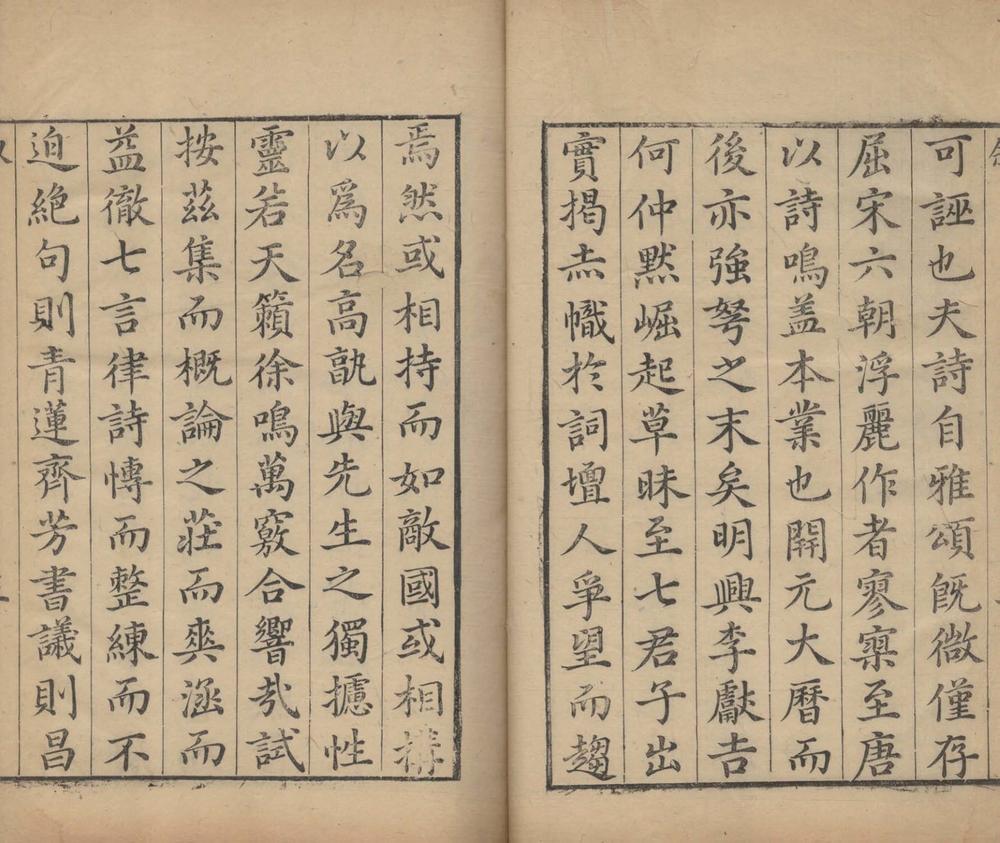 可誣也夫詩自雅頌旣微僅存
屈宋六朝浮麗作者寥寥至唐
以詩鳴盖本業也開元大曆而
後亦強弩之末矣明興李獻吉
何仲默崛起草昧至七君子出
實揭赤幟於詞壇人爭望而趨
焉然或相持而如敵國或相構
以爲名高孰與先生之獨攄性
靈若天籟徐鳴萬竅合響哉試
按茲集而概論之莊而爽涵而
益徹七言律詩慱而整練而不
迫絕句則青蓮齊芳書議則昌